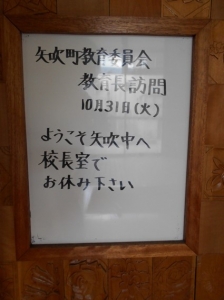 矢吹町教育委員会
教育長訪問
10月31日(火)
ようこそ矢吹中へ
校長室で
お休み下さい